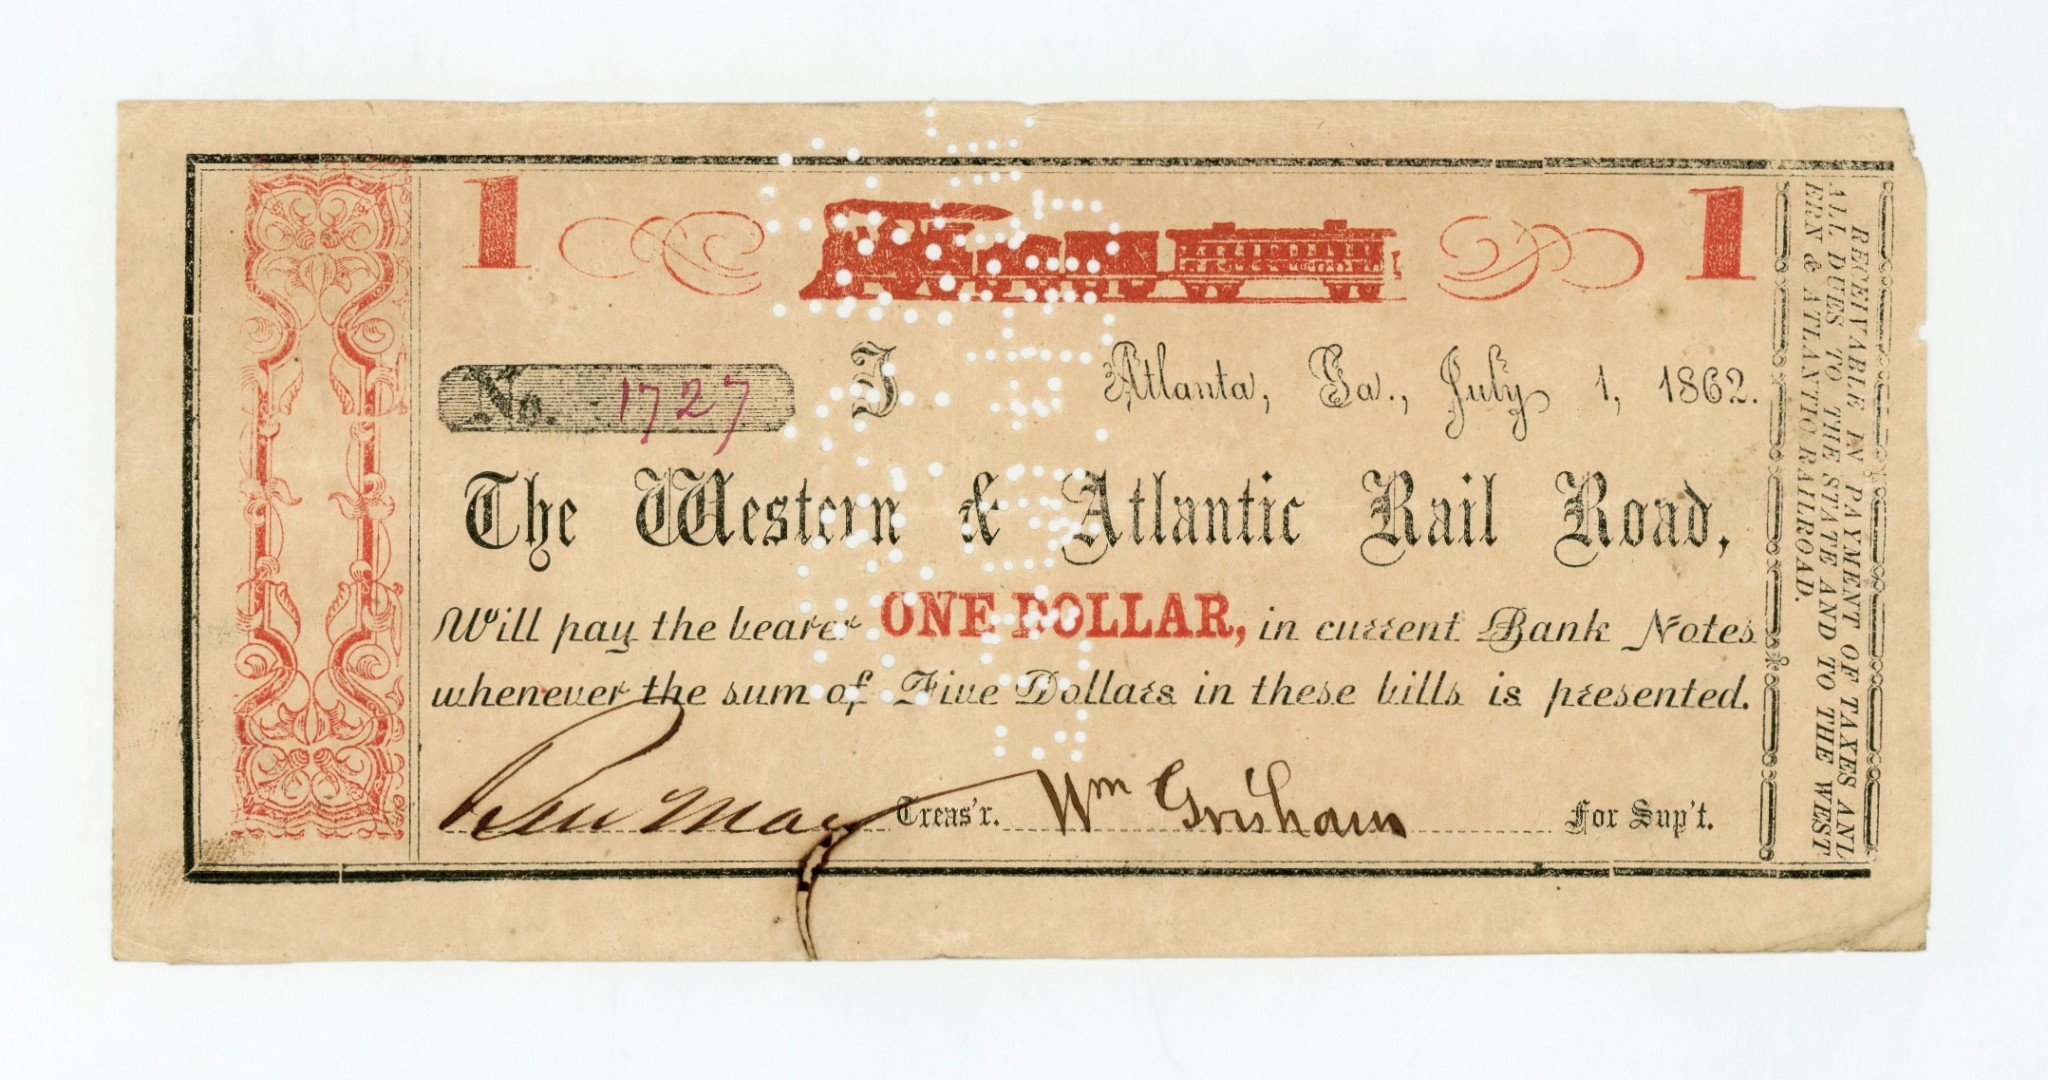 1 1
No. 1727 J Atlanta, Ga., July 1, 1862.
The Western & Atlantic Rail Road,
Will pay the bearer ONE DOLLAR, in current Bank Notes
whenever the sum of Five Dollars in these bills is presented.
Ben May Treas'r. Wm Grisham For Sup't.
RECEIVABLE IN PAYMENT OF TAXES AND
ALL DUES TO THE STATE AND TO THE WEST
ERN & ATLANTIC RAILROAD.